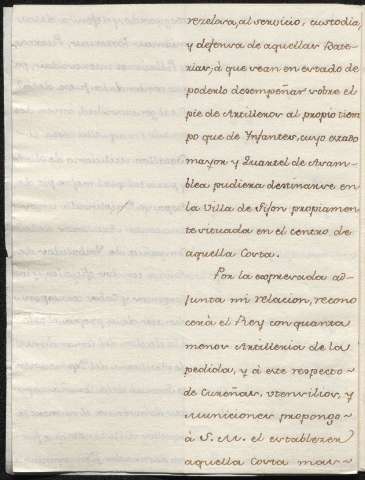 rezelara, al servicio, custodia,
y defensa de aquellas Bate-
rias, à que vean en estado de
poderlo desempeñar sobre el
pie de Artilleros al propio tiem
po que de Ynfantes, cuyo estado
mayor y Quartel de Asam-
blea pudiera destinarse en
la Villa de Gijon propiamen
te situada en el centro de
aquella Costa.
Por la expresada ad-
junta mi relacion, recono
cerá el Rey con quanta
menos Artilleria de la
pedida, y à este respecto
de Cureñas, utensilios, y
Municiones propongo
à S. M. el establecer
aquella Costa mas